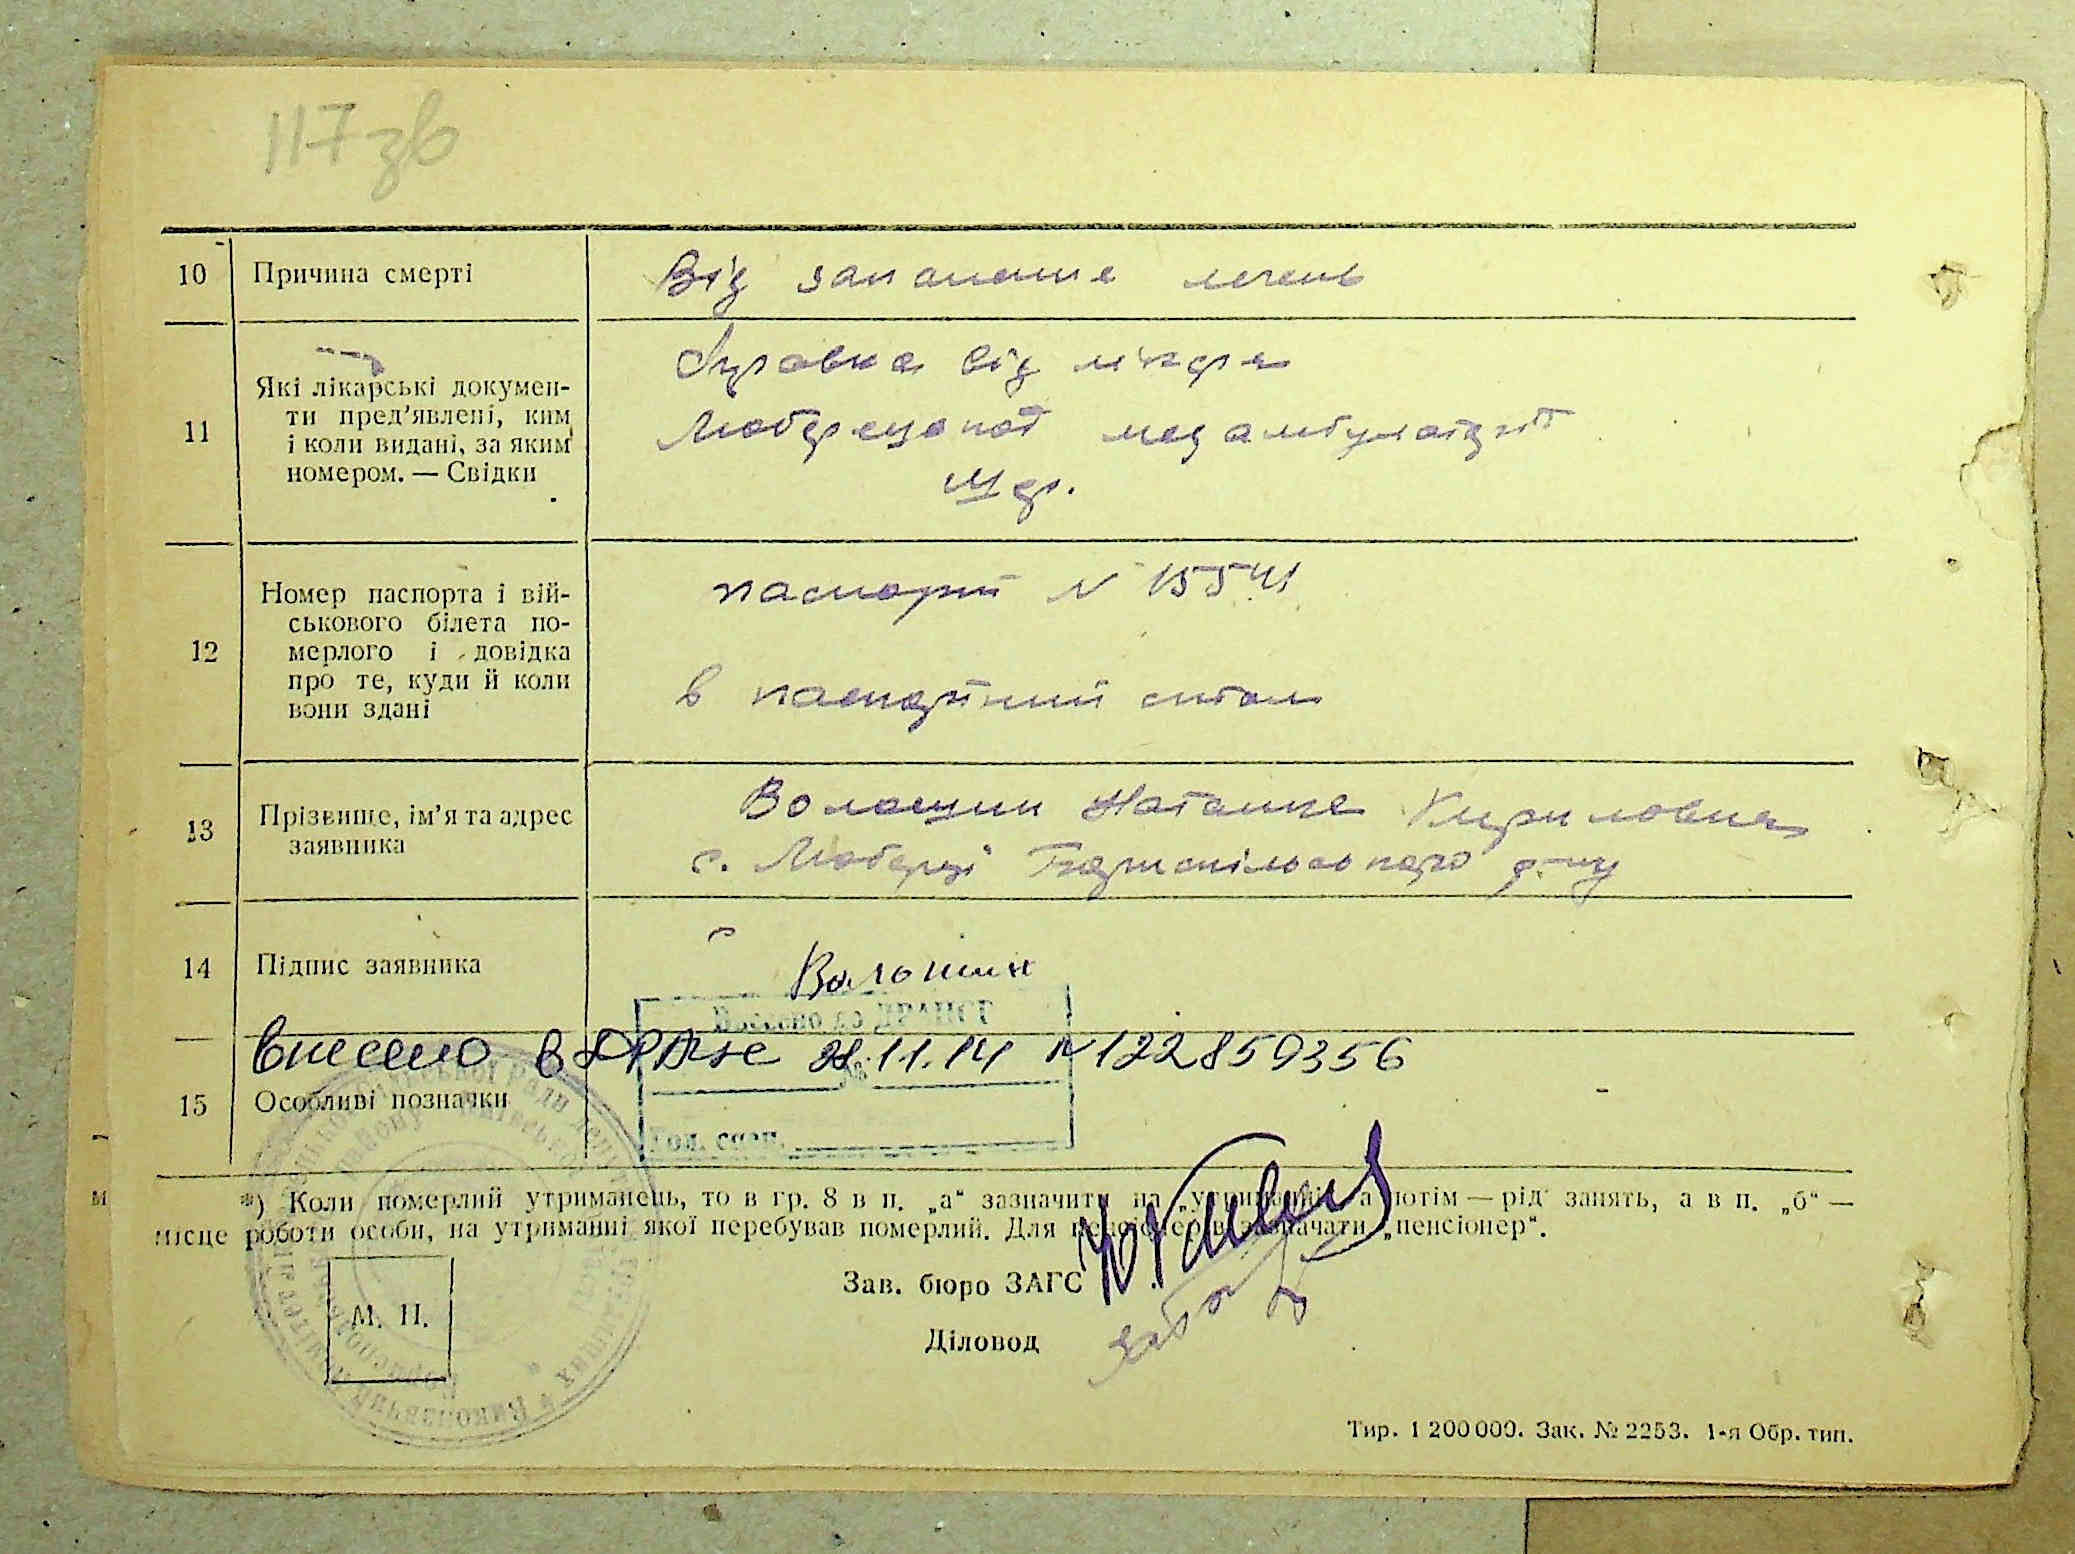 117 зв
10 Причина смерті Від запалення легень
11 Які лікарські докумен-
ти пред'явлені, ким
і коли видані, за яким
номером. — Свідки
Справка від лікаря
Любарецької медамбулаторії
12 Номер паспорта і вій-
ськового білета по-
мерлого і довідка
про те, куди й коли
вони здані
паспорт N 15541
в паспортний стол
13 Прізвище, ім'я та адрес
заявника
Волошин Наталка Кириловна
с. Любарці Бориспільського р-ну
14 Підпис заявника Волошин
Внесено до ДРАЦСГ
внесено в 28.11.14 N 122859356
15 Особливі позначки
Гол. спец.
*) Коли померлий утриманець, то в гр. 8 в п. „а“ зазначити на „утриманні“, а потім — рід занять, а в п. „б“ —
місце роботи особи, на утриманні якої перебував померлий. Для пенсіонерів зазначати „пенсіонер“.
Зав. бюро ЗАГС
М. П.
Діловод
Тир. 1 200 000. Зак. № 2253. 1-я Обр. тип.